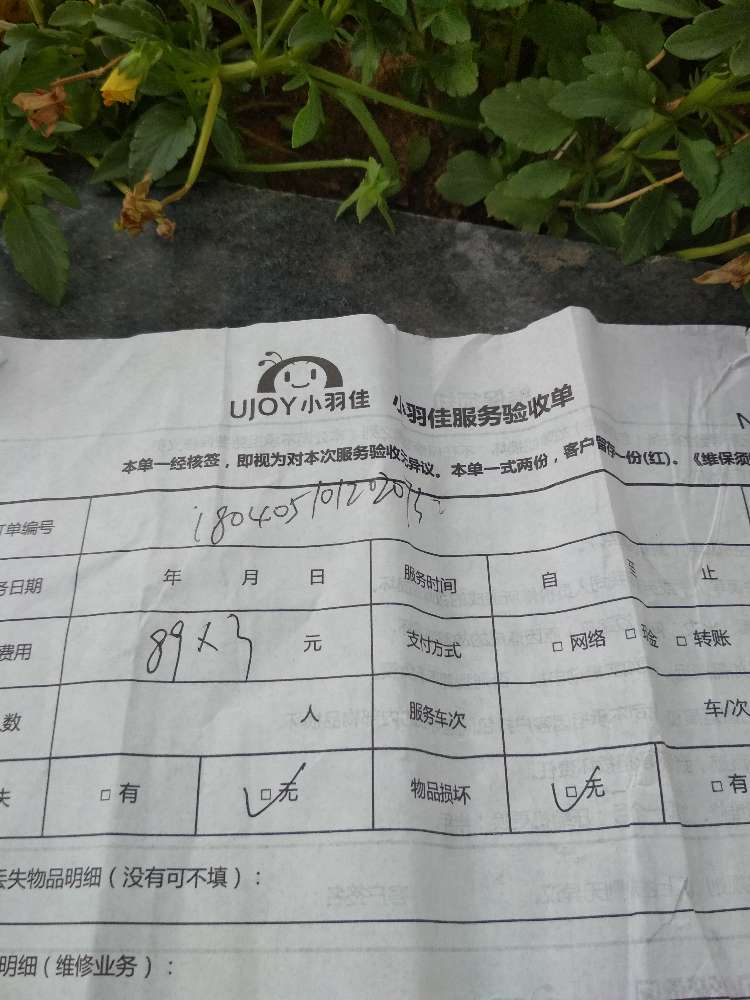 UJOY小羽佳 小羽佳服务验收单
N
本单一经核签，即视为对本次服务验收无异议。本单一式两份，客户留存一份(红)。《维保须
订单编号
务日期 年 月 日 服务时间 自 至 止
费用 89×3 元 支付方式 □网络 □现金 □转账
人数 人 服务车次 车/次
失 □有 □无 物品损坏 □无 □有
丢失物品明细（没有可不填）：
明细（维修业务）：